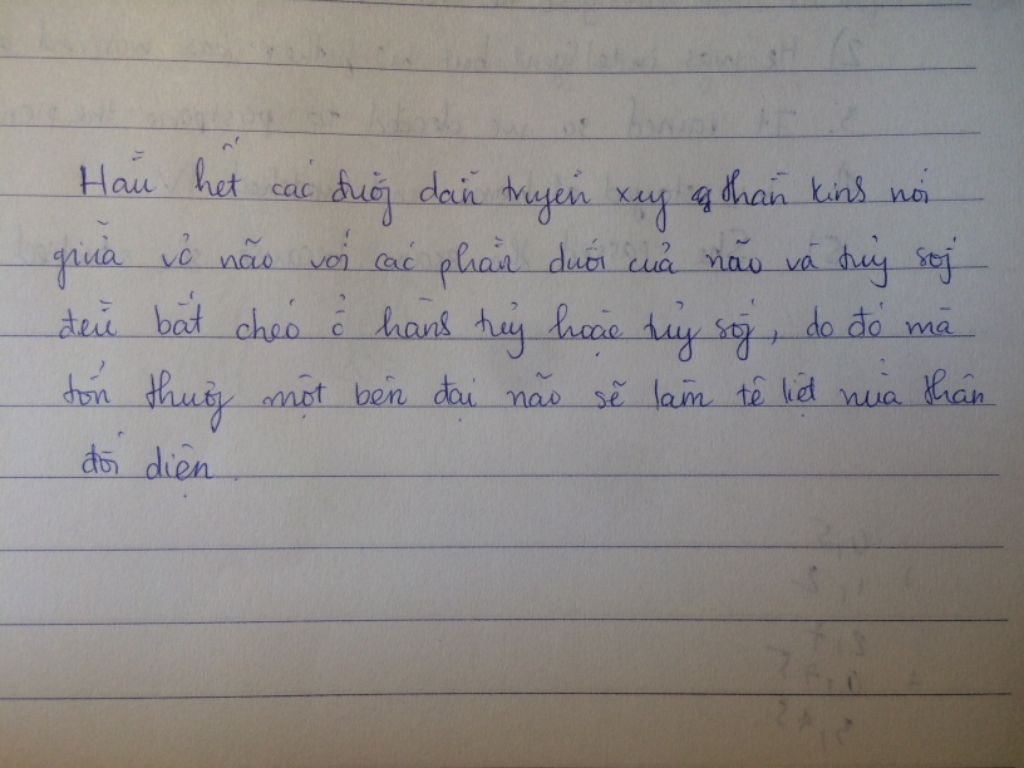 Hầu hết các đường dẫn truyền xung thần kinh nối
giữa vỏ não với các phần dưới của não và tủy sống
đều bắt chéo ở hành tủy hoặc tủy sống, do đó mà
tổn thương một bên đại não sẽ làm tê liệt nửa thân
đối diện.